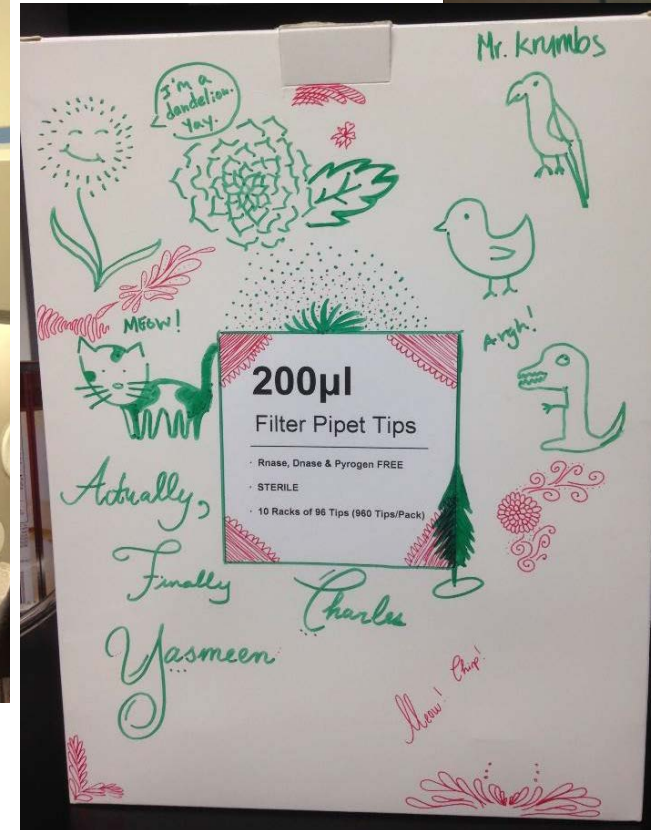 Mr. Krumbs
I'm a
dandelion.
Yay.
MEOW!
Argh!
200µl
Filter Pipet Tips
· Rnase, Dnase & Pyrogen FREE
· STERILE
· 10 Racks of 96 Tips (960 Tips/Pack)
Actually,
Finally
Charles
Yasmeen
Meow! Chirp!